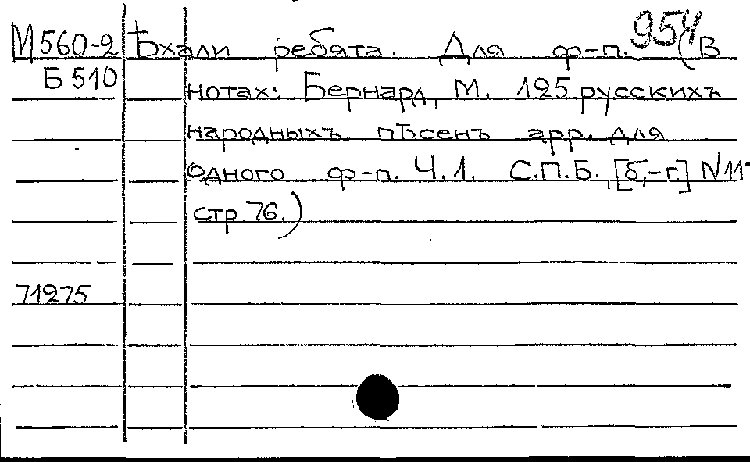 954
М560-2 Ѣхали ребята. Для ф-п. (В
Б 510 нотахъ: Бернард, М. 125 русскихъ
народныхъ пѣсенъ арр. для
одного ф-п. Ч.1. С.П.Б. [б.-г.] N 11
стр 76.)
71275